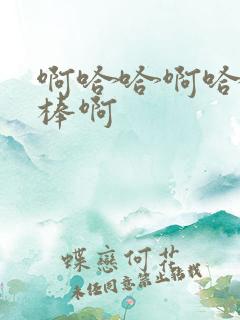 啊哈哈啊哈
棒啊
蝶恋何花
未经同意禁止转载